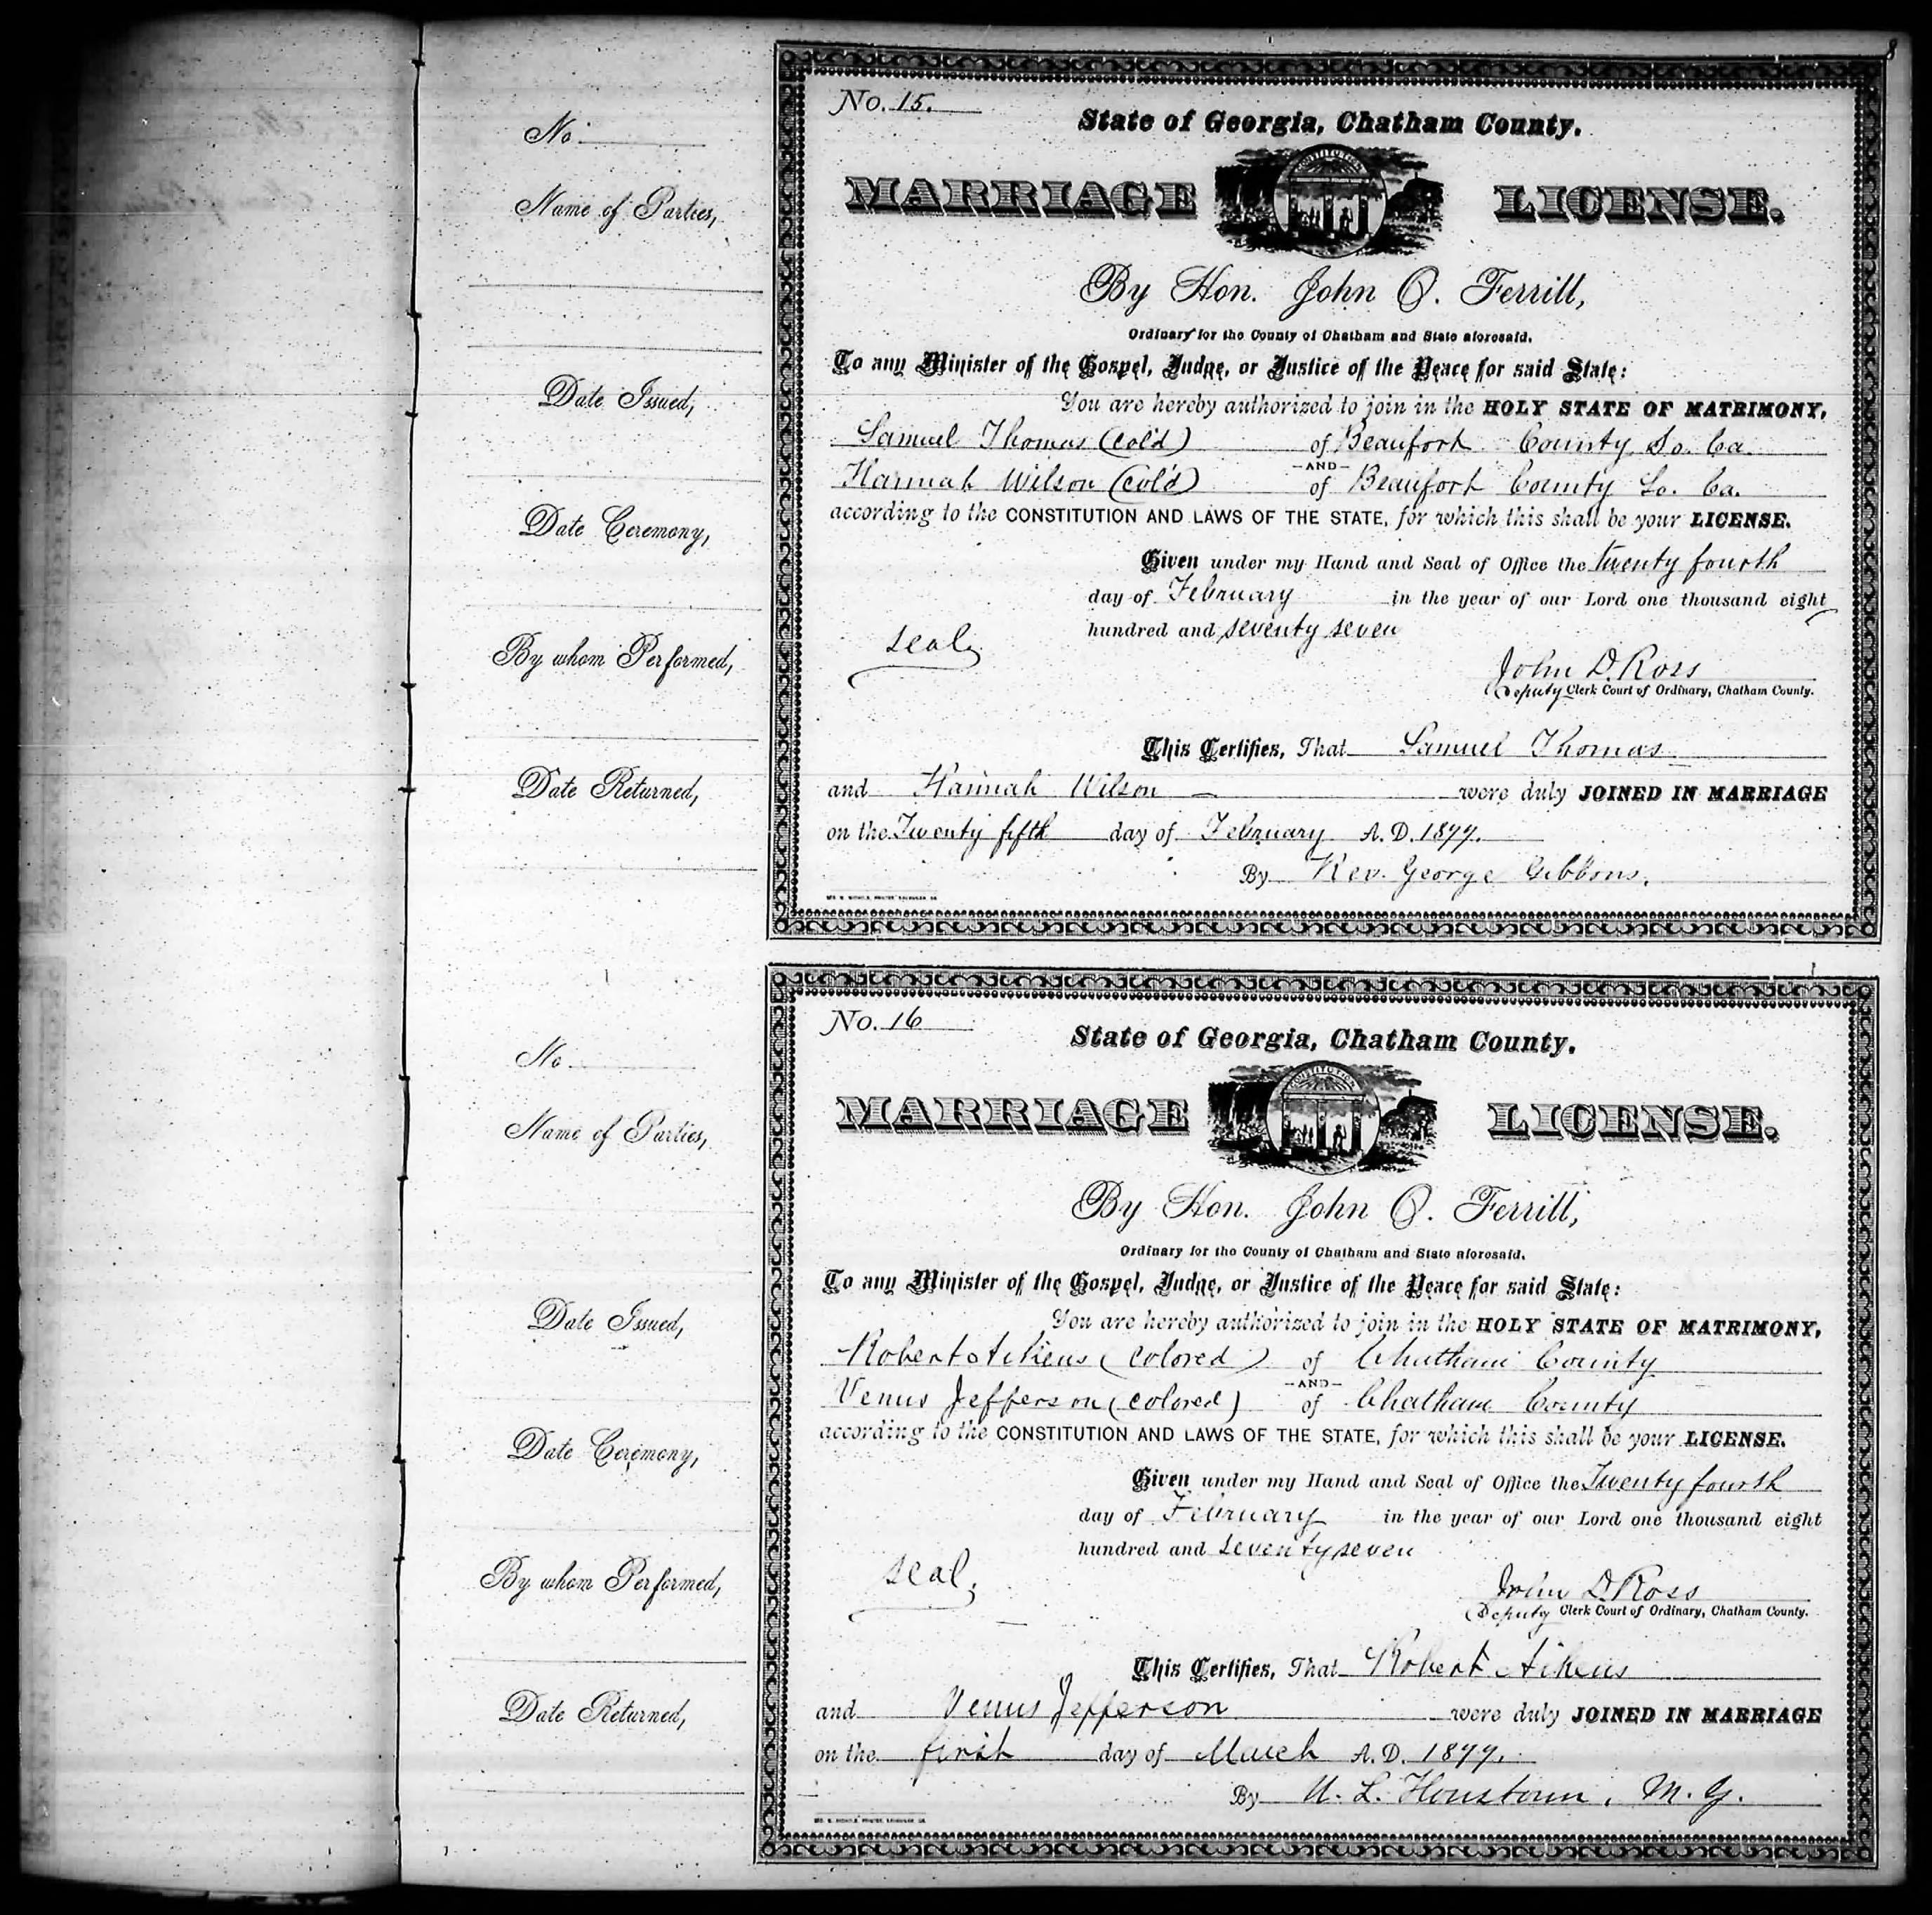 8
No.
Name of Parties,
Date Issued,
Date Ceremony,
By whom Performed,
Date Returned,
No. 15.
State of Georgia, Chatham County.
MARRIAGE LICENSE.
CONSTITUTION
By Hon. John O. Ferrill,
Ordinary for the County of Chatham and State aforesaid.
To any Minister of the Gospel, Judge, or Justice of the Peace for said State:
You are hereby authorized to join in the HOLY STATE OF MATRIMONY,
Samuel Thomas (Col'd) of Beaufort County So. Ca
-AND-
Hannah Wilson (Col'd) of Beaufort County So. Ca.
according to the CONSTITUTION AND LAWS OF THE STATE, for which this shall be your LICENSE.
Given under my Hand and Seal of Office the Twenty fourth
day of February in the year of our Lord one thousand eight
hundred and seventy seven
seal
John D. Ross
Deputy Clerk Court of Ordinary, Chatham County.
This Certifies, That Samuel Thomas
and Hannah Wilson — were duly JOINED IN MARRIAGE
on the Twenty fifth day of February A. D. 1877.
By Rev. George Gibbons.
No
Name of Parties,
Date Issued,
Date Ceremony,
By whom Performed,
Date Returned,
No. 16
State of Georgia, Chatham County.
MARRIAGE LICENSE.
CONSTITUTION
By Hon. John O. Ferrill,
Ordinary for the County of Chatham and State aforesaid.
To any Minister of the Gospel, Judge, or Justice of the Peace for said State:
You are hereby authorized to join in the HOLY STATE OF MATRIMONY,
Robert Aikens (Colored) of Chatham County
-AND-
Venus Jefferson (Colored) of Chatham County
according to the CONSTITUTION AND LAWS OF THE STATE, for which this shall be your LICENSE.
Given under my Hand and Seal of Office the Twenty fourth
day of February in the year of our Lord one thousand eight
hundred and seventy seven
seal.
John D. Ross
Deputy Clerk Court of Ordinary, Chatham County.
This Certifies, That Robert Aikens
and Venus Jefferson were duly JOINED IN MARRIAGE
on the first day of March A. D. 1877.
By U. L. Houstoun, M. G.